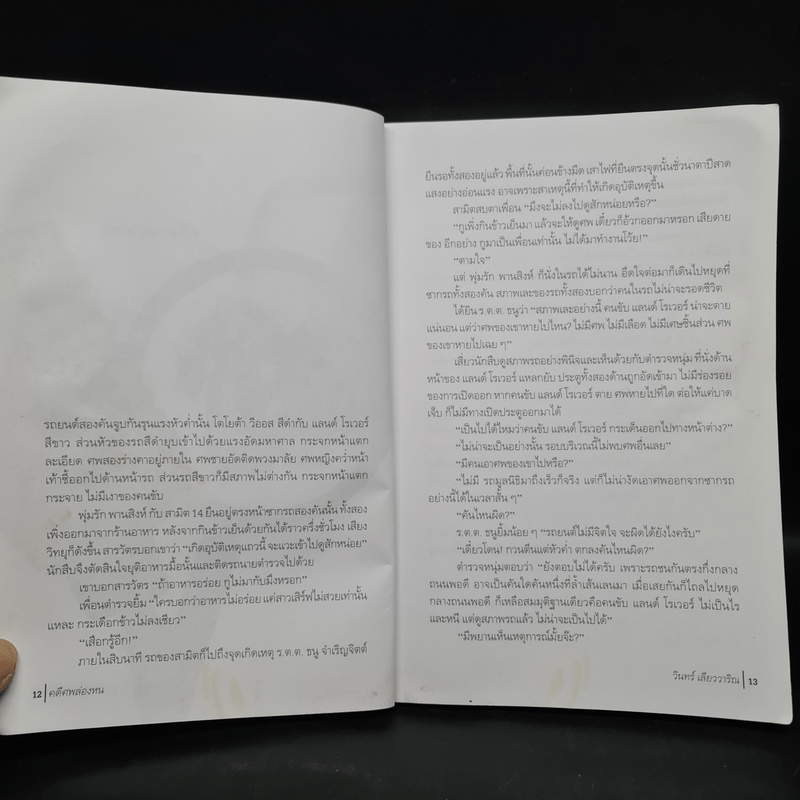 รถยนต์สองคันจูบกันรุนแรงหัวค่ำนั้น โตโยต้า วีออส สีดำกับ แลนด์ โรเวอร์
สีขาว ส่วนหัวของรถสีดำยุบเข้าไปด้วยแรงอัดมหาศาล กระจกหน้าแตก
ละเอียด ศพสองร่างคาอยู่ภายใน ศพชายอัดติดพวงมาลัย ศพหญิงคว่ำหน้า
เท้าชี้ออกไปด้านหน้ารถ ส่วนรถสีขาวก็มีสภาพไม่ต่างกัน กระจกหน้าแตก
กระจาย ไม่มีเงาของคนขับ
พุ่มรัก พานสิงห์ กับ สามิต 14 ยืนอยู่ตรงหน้าซากรถสองคันนั้น ทั้งสอง
เพิ่งออกมาจากร้านอาหาร หลังจากกินข้าวเย็นด้วยกันได้ราวครึ่งชั่วโมง เสียง
วิทยุก็ดังขึ้น สารวัตรบอกเขาว่า “เกิดอุบัติเหตุแถวนี้ จะแวะเข้าไปดูสักหน่อย”
นักสืบจึงตัดสินใจยุติอาหารมื้อนั้นและติดรถนายตำรวจไปด้วย
เขาบอกสารวัตร “ถ้าอาหารอร่อย กูไม่มากับมึงหรอก”
เพื่อนตำรวจยิ้ม “ใครบอกว่าอาหารไม่อร่อย แค่สาวเสิร์ฟไม่สวยเท่านั้น
แหละ กระเดือกข้าวไม่ลงเชียว”
“เสือกรู้อีก!”
ภายในสิบนาที รถของสามิตก็ไปถึงจุดเกิดเหตุ ร.ต.ต. ธนู จำเริญจิตต์
12 คดีศพล่องหน
ยืนรอทั้งสองอยู่แล้ว พื้นที่นั้นค่อนข้างมืด เสาไฟที่ยืนตรงจุดนั้นชั่วนาตาปีสาด
แสงอย่างอ่อนแรง อาจเพราะสาเหตุนี้ที่ทำให้เกิดอุบัติเหตุขึ้น
สามิตสบตาเพื่อน “มึงจะไม่ลงไปดูสักหน่อยหรือ?”
“กูเพิ่งกินข้าวเย็นมา แล้วจะให้ดูศพ เดี๋ยวก็อ้วกออกมาหรอก เสียดาย
ของ อีกอย่าง กูมาเป็นเพื่อนเท่านั้น ไม่ได้มาทำงานโว้ย!”
“ตามใจ”
แต่ พุ่มรัก พานสิงห์ ก็นั่งในรถได้ไม่นาน อึดใจต่อมาก็เดินไปหยุดที่
ซากรถทั้งสองคัน สภาพเละของรถทั้งสองบอกว่าคนในรถไม่น่าจะรอดชีวิต
ได้ยิน ร.ต.ต. ธนูว่า “สภาพเละอย่างนี้ คนขับ แลนด์ โรเวอร์ น่าจะตาย
แน่นอน แต่ว่าศพของเขาหายไปไหน? ไม่มีศพ ไม่มีเลือด ไม่มีเศษชิ้นส่วน ศพ
ของเขาหายไปเฉย ๆ”
เสี่ยวนักสืบดูสภาพรถอย่างพินิจและเห็นด้วยกับตำรวจหนุ่ม ที่นั่งด้าน
หน้าของ แลนด์ โรเวอร์ แหลกยับ ประตูทั้งสองด้านถูกอัดเข้ามา ไม่มีร่องรอย
ของการเปิดออก หากคนขับ แลนด์ โรเวอร์ ตาย ศพหายไปที่ใด ต่อให้แค่บาด
เจ็บ ก็ไม่มีทางเปิดประตูออกมาได้
“เป็นไปได้ไหมว่าคนขับ แลนด์ โรเวอร์ กระเด็นออกไปทางหน้าต่าง?”
“ไม่น่าจะเป็นอย่างนั้น รอบบริเวณนี้ไม่พบศพอื่นเลย”
“มีคนเอาศพของเขาไปหรือ?”
“ไม่มี รถมูลนิธิมาถึงเร็วก็จริง แต่ก็ไม่น่างัดเอาศพออกจากซากรถ
อย่างนี้ได้ในเวลาสั้น ๆ”
“คันไหนผิด?”
ร.ต.ต. ธนูยิ้มน้อย ๆ “รถยนต์ไม่มีจิตใจ จะผิดได้ยังไงครับ”
“เดี๋ยวโดน! กวนตีนแต่หัวค่ำ ตกลงคันไหนผิด?”
ตำรวจหนุ่มตอบว่า “ยังตอบไม่ได้ครับ เพราะรถชนกันตรงกึ่งกลาง
ถนนพอดี อาจเป็นคันใดคันหนึ่งที่ล้ำเส้นเลนมา เมื่อเสยกันก็ไถลไปหยุด
กลางถนนพอดี ก็เหลือสมมุติฐานเดียวคือคนขับ แลนด์ โรเวอร์ ไม่เป็นไร
และหนี แต่ดูสภาพรถแล้ว ไม่น่าจะเป็นไปได้”
“มีพยานเห็นเหตุการณ์มั้ยจ๊ะ?”
วินทร์ เลียววาริณ 13